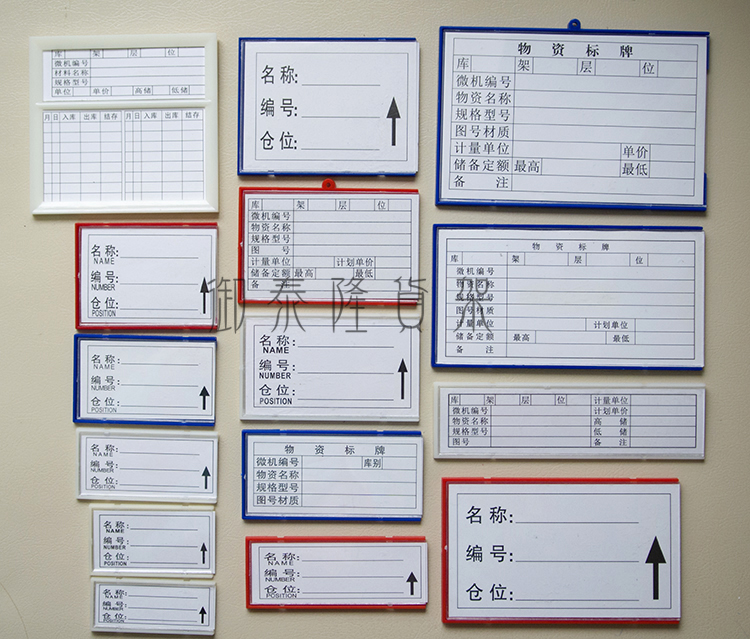 库 架 层 位
微机编号
材料名称
规格型号
单位 单价 高储 低储
月 日 入库 出库 结存 月 日 入库 出库 结存
名称:
NAME
编号:
NUMBER
仓位:
POSITION
名称:
NAME
编号:
NUMBER
仓位:
POSITION
名称:
NAME
编号:
NUMBER
仓位:
POSITION
名称:
NAME
编号:
NUMBER
仓位:
POSITION
名称:
NAME
编号:
NUMBER
仓位:
POSITION
名称:
编号:
仓位:
库 架 层 位
微机编号
物资名称
规格型号
图 号
计量单位 计划单价
储备定额 最高 最低
备 注
御泰隆貨架
名称:
NAME
编号:
NUMBER
仓位:
POSITION
物资标牌
微机编号 库别
物资名称
规格型号
图号材质
名称:
NAME
编号:
NUMBER
仓位:
POSITION
物资标牌
库 架 层 位
微机编号
物资名称
规格型号
图号材质
计量单位 单价
储备定额 最高 最低
备 注
物资标牌
库 架 层 位
微机编号
物资名称
规格型号
图号材质
计量单位 计划单位
储备定额 最高 最低
备 注
库 架 层 位 计量单位
微机编号 计划单价
物资名称 高 储
规格型号 低 储
图号 备 注
名称:
编号:
仓位: